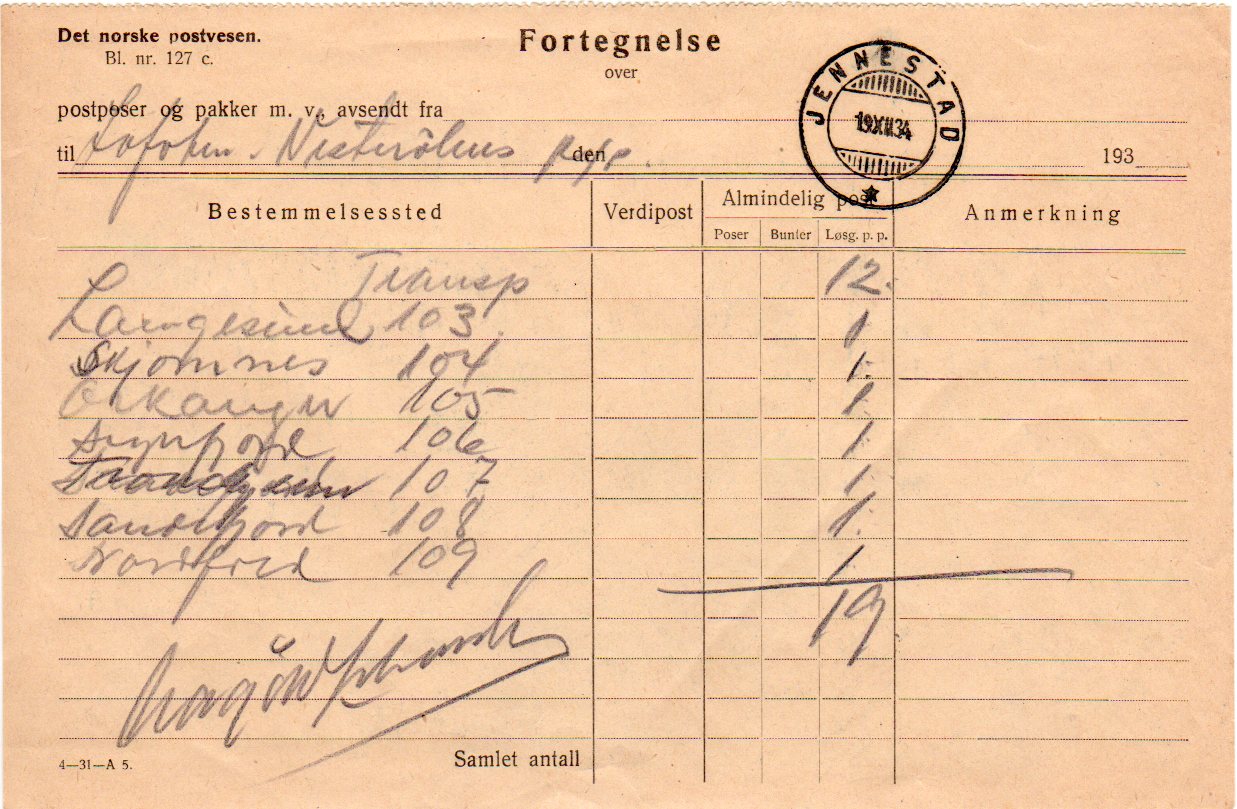 Det norske postvesen.
Bl. nr. 127 c.
Fortegnelse
over
JENNESTAD
19XII34
postposer og pakker m. v., avsendt fra
til Lofoten - Vesterålens den 193
Bestemmelsessted Verdipost Almindelig post Anmerkning
Poser Bunter Løsg. p. p.
Transp 12.
Langesund 103 1
Skjomnes 104 1.
Orkanger 105 1.
106 1.
107 1.
Sandefjord 108 1.
109 1.
19
Samlet antall
4—31—A 5.